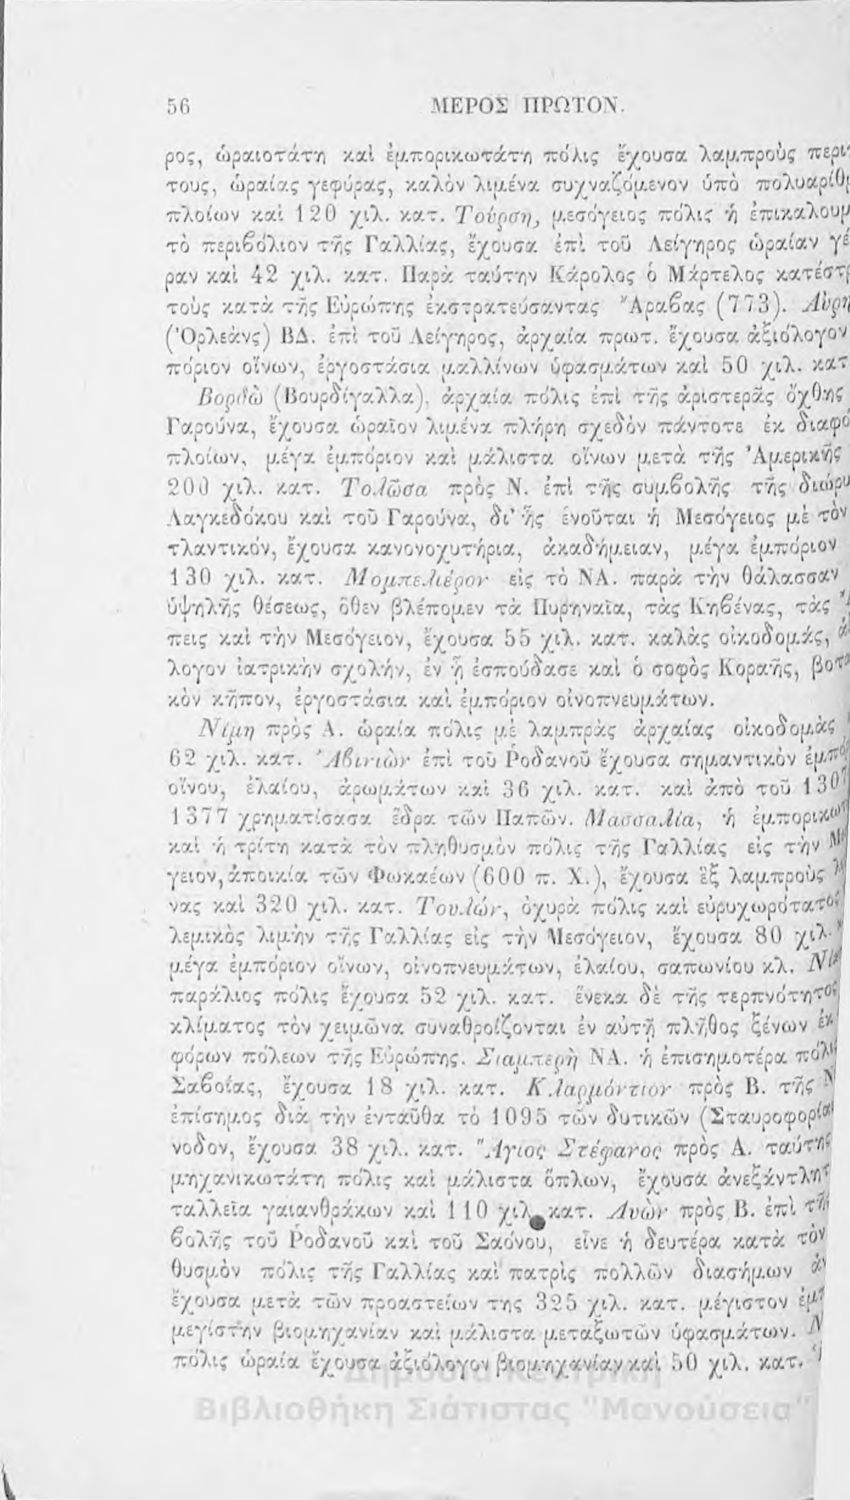 56 ΜΕΡΟΣ ΠΡΩΤΟΝ.
ρος, ὡραιοτάτη καὶ ἐμπορικωτάτη πόλις ἔχουσα λαμπροὺς περι
τους, ὡραίας γεφύρας, καλὸν λιμένα συχναζόμενον ὑπὸ πολυαρίθ
πλοίων καὶ 120 χιλ. κατ. Τούρση, μεσόγειος πόλις ἡ ἐπικαλουμ
τὸ περιβόλιον τῆς Γαλλίας, ἔχουσα ἐπὶ τοῦ Λείγηρος ὡραίαν γέ
ραν καὶ 42 χιλ. κατ. Παρὰ ταύτην Κάρολος ὁ Μάρτελος κατέστ
τοὺς κατὰ τῆς Εὐρώπης ἐκστρατεύσαντας Ἄραβας (773). Αὐρη
(Ὀρλεὰνς) ΒΔ. ἐπὶ τοῦ Λείγηρος, ἀρχαία πρωτ. ἔχουσα ἀξιόλογον
πόριον οἴνων, ἐργοστάσια μαλλίνων ὑφασμάτων καὶ 50 χιλ. κατ
Βορδὼ (Βουρδίγαλλα), ἀρχαία πόλις ἐπὶ τῆς ἀριστερᾶς ὄχθης
Γαρούνα, ἔχουσα ὡραῖον λιμένα πλήρη σχεδὸν πάντοτε ἐκ διαφό
πλοίων, μέγα ἐμπόριον καὶ μάλιστα οἴνων μετὰ τῆς Ἀμερικῆς
200 χιλ. κατ. Τολῶσα πρὸς Ν. ἐπὶ τῆς συμβολῆς τῆς διώρυ
Λαγκεδόκου καὶ τοῦ Γαρούνα, δι' ἧς ἑνοῦται ἡ Μεσόγειος μὲ τὸν
τλαντικόν, ἔχουσα κανονοχυτήρια, ἀκαδήμειαν, μέγα ἐμπόριον
130 χιλ. κατ. Μομπελιέρον εἰς τὸ ΝΑ. παρὰ τὴν θάλασσαν
ὑψηλῆς θέσεως, ὅθεν βλέπομεν τὰ Πυρηναῖα, τὰς Κηβένας, τὰς
πεις καὶ τὴν Μεσόγειον, ἔχουσα 55 χιλ. κατ. καλὰς οἰκοδομάς,
λογον ἰατρικὴν σχολήν, ἐν ᾗ ἐσπούδασε καὶ ὁ σοφὸς Κοραῆς, βοτα
κὸν κῆπον, ἐργοστάσια καὶ ἐμπόριον οἰνοπνευμάτων.
Νίμη πρὸς Α. ὡραία πόλις μὲ λαμπρὰς ἀρχαίας οἰκοδομὰς
62 χιλ. κατ. Ἀβινιὼν ἐπὶ τοῦ Ῥοδανοῦ ἔχουσα σημαντικὸν ἐμπό
οἴνου, ἐλαίου, ἀρωμάτων καὶ 36 χιλ. κατ. καὶ ἀπὸ τοῦ 130
1377 χρηματίσασα ἕδρα τῶν Παπῶν. Μασσαλία, ἡ ἐμπορικω
καὶ ἡ τρίτη κατὰ τὸν πληθυσμὸν πόλις τῆς Γαλλίας εἰς τὴν Με
γειον, ἀποικία τῶν Φωκαέων (600 π. Χ.), ἔχουσα ἓξ λαμπροὺς λι
νας καὶ 320 χιλ. κατ. Τουλών, ὀχυρὰ πόλις καὶ εὐρυχωρότατος
λεμικὸς λιμὴν τῆς Γαλλίας εἰς τὴν Μεσόγειον, ἔχουσα 80 χιλ.
μέγα ἐμπόριον οἴνων, οἰνοπνευμάτων, ἐλαίου, σαπωνίου κλ. Νί
παράλιος πόλις ἔχουσα 52 χιλ. κατ. ἕνεκα δὲ τῆς τερπνότητος
κλίματος τὸν χειμῶνα συναθροίζονται ἐν αὐτῇ πλῆθος ξένων ἐκ
φόρων πόλεων τῆς Εὐρώπης. Σιαμπερὴ ΝΑ. ἡ ἐπισημοτέρα πόλι
Σαβοΐας, ἔχουσα 18 χιλ. κατ. Κλαρμόντιον πρὸς Β. τῆς Ν
ἐπίσημος διὰ τὴν ἐνταῦθα τὸ 1095 τῶν δυτικῶν (Σταυροφορία
νοδον, ἔχουσα 38 χιλ. κατ. Ἅγιος Στέφανος πρὸς Α. ταύτης
μηχανικωτάτη πόλις καὶ μάλιστα ὅπλων, ἔχουσα ἀνεξάντλητ
ταλλεῖα γαιανθράκων καὶ 110 χιλ. κατ. Λυὼν πρὸς Β. ἐπὶ τῆς
βολῆς τοῦ Ῥοδανοῦ καὶ τοῦ Σαόνου, εἶνε ἡ δευτέρα κατὰ τὸν
θυσμὸν πόλις τῆς Γαλλίας καὶ πατρὶς πολλῶν διασήμων ἀν
ἔχουσα μετὰ τῶν προαστείων της 325 χιλ. κατ. μέγιστον ἐμπ
μεγίστην βιομηχανίαν καὶ μάλιστα μεταξωτῶν ὑφασμάτων.
πόλις ὡραία ἔχουσα ἀξιόλογον βιομηχανίαν καὶ 50 χιλ. κατ.
Δημόσια Κεντρική
Βιβλιοθήκη Σιάτιστας "Μανούσεια"